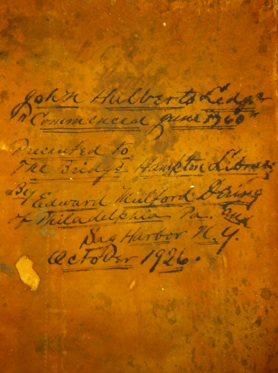 John Hulberts Ledger
Commenced June 1760
Presented to
The Bridge Hampton Library
By Edward Mulford Doring
of Philadelphia Pa. and
Sag Harbor N.Y.
October 1926.